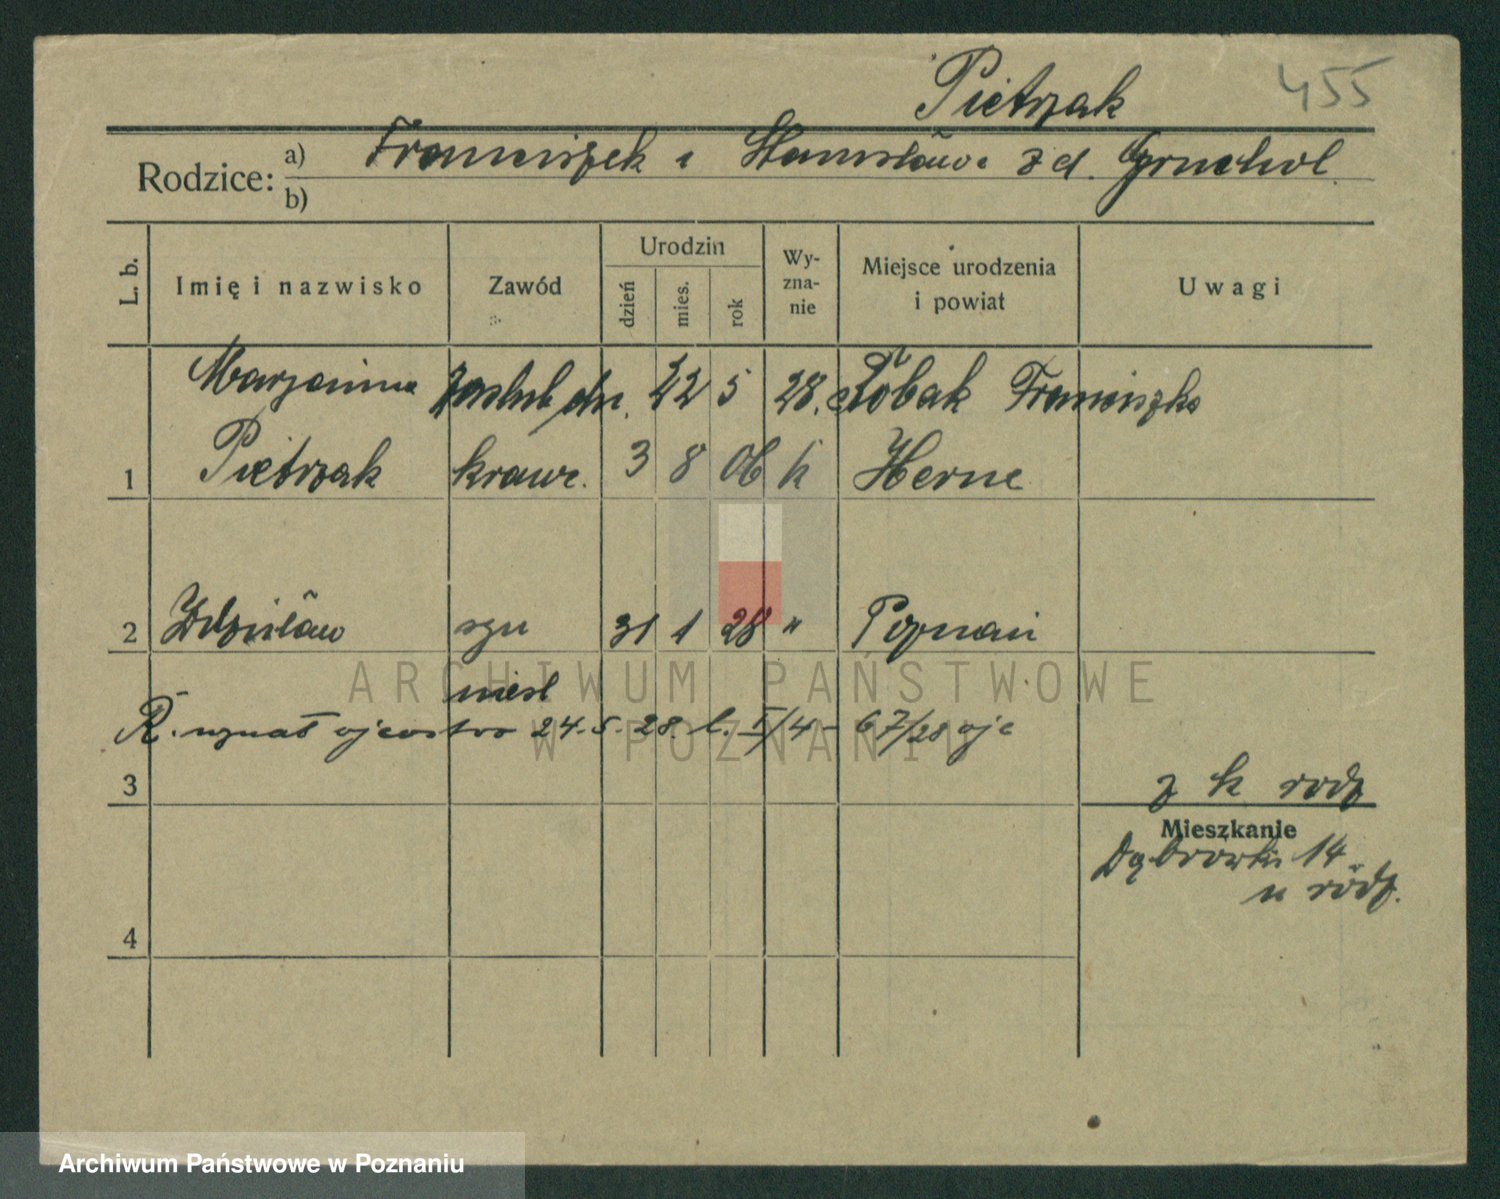 Pietrzak 455
Rodzice: a) Franciszek i Stanisława z d. Gruchol
b)
L. b. Imię i nazwisko Zawód Urodzin dzień mies. rok Wy-zna-nie Miejsce urodzenia i powiat Uwagi
Marjanna zaślub dn. 22 5 28. Robak Franciszka
1 Pietrzak krawc. 3 8 06 k Herne
2 Zdzisław syn 31 1 28 " Poznań
nieśl
R. uznał ojcostwo 24.5.28. l. I/4 - 67/28 ojc
3
z k rodz
Mieszkanie
Dąbrówki 14
u rodz.
4
ARCHIWUM PAŃSTWOWE
W POZNANIU
Archiwum Państwowe w Poznaniu